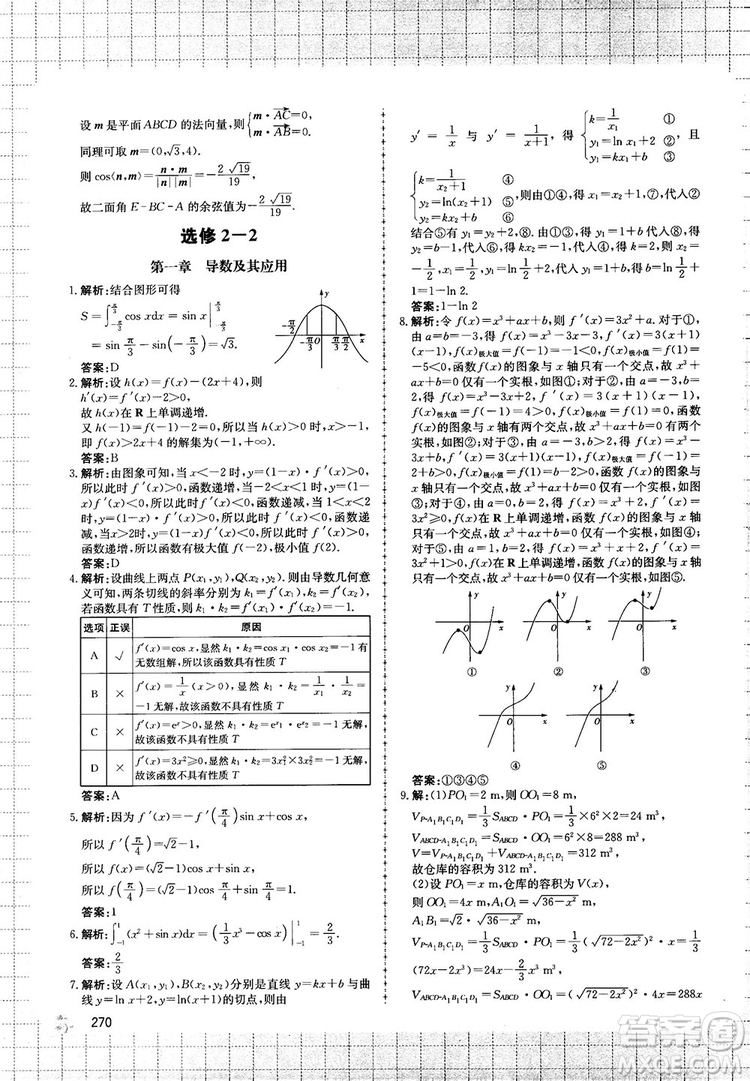 设 m 是平面 ABCD 的法向量,则{m·AC=0,
m·AB=0.
同理可取 m=(0,√3,4).
则 cos⟨n,m⟩=n·m/|n||m|=-2√19/19.
故二面角 E-BC-A 的余弦值为-2√19/19.
选修 2-2
第一章 导数及其应用
1. 解析:结合图形可得
S=∫_{-π/3}^{π/3} cos xdx=sin x|_{-π/3}^{π/3}
=sin π/3-sin(-π/3)=√3.
答案:D
2. 解析:设 h(x)=f(x)-(2x+4),则
h′(x)=f′(x)-2>0,
故 h(x)在 R 上单调递增.
又 h(-1)=f(-1)-2=0,所以当 h(x)>0 时,x>-1,
即 f(x)>2x+4 的解集为(-1,+∞).
答案:B
3. 解析:由图象可知,当 x<-2 时,y=(1-x)·f′(x)>0,
所以此时 f′(x)>0,函数递增.当-2<x<1 时,y=
(1-x)·f′(x)<0,所以此时 f′(x)<0,函数递减,当 1<x<2
时,y=(1-x)·f′(x)>0,所以此时 f′(x)<0,函数递
减,当 x>2 时,y=(1-x)·f′(x)<0,所以此时 f′(x)>0,
函数递增.所以函数有极大值 f(-2),极小值 f(2).
答案:D
4. 解析:设曲线上两点 P(x₁,y₁),Q(x₂,y₂).则由导数几何意
义可知,两条切线的斜率分别为 k₁=f′(x₁),k₂=f′(x₂),
若函数具有 T 性质,则 k₁·k₂=f′(x₁)·f′(x₂)=-1.
选项 正误 原因
A √ f′(x)=cos x,显然 k₁·k₂=cos x₁·cos x₂=-1 有
无数组解,所以该函数具有性质 T
B × f′(x)=1/x (x>0),显然 k₁·k₂=1/x₁·1/x₂=-1 无
解,故该函数不具有性质 T
C × f′(x)=eˣ>0,显然 k₁·k₂=e^{x₁}·e^{x₂}=-1 无解,
故该函数不具有性质 T
D × f′(x)=3x²≥0,显然 k₁·k₂=3x₁²×3x₂²=-1 无
解,故该函数不具有性质 T
答案:A
5. 解析:因为 f′(x)=-f′(π/4)sin x+cos x,
所以 f′(π/4)=√2-1,
所以 f(x)=(√2-1)cos x+sin x,
所以 f(π/4)=(√2-1)cos π/4+sin π/4=1.
答案:1
6. 解析:∫_{-1}^{1}(x²+sin x)dx=(1/3x³-cos x)|_{-1}^{1}=2/3.
答案:2/3
7. 解析:设 A(x₁,y₁),B(x₂,y₂)分别是直线 y=kx+b 与曲
线 y=ln x+2,y=ln(x+1)的切点,则由
270
y′=1/x 与 y′=1/(x+1),得{k=1/x₁ ①
y₁=ln x₁+2 ②
y₁=kx₁+b ③ 且
{k=1/(x₂+1) ④
y₂=ln(x₂+1) ⑤
y₂=kx₂+b ⑥
,则由①④,得 x₁-x₂=1 ⑦,代入②
结合⑤有 y₁-y₂=2 ⑧.由①③,得 y₁=1+b,代入⑧,得
y₂=b-1,代入⑥,得 kx₂=-1,代入④,得 k=2,则 x₂=
-1/2,代入⑤,得 y₂=-ln 2,代入⑥,得 b=-ln 2-2×(-1/2)=
1-ln 2.
答案:1-ln 2
8. 解析:令 f(x)=x³+ax+b,则 f′(x)=3x²+a.对于①,
由 a=b=-3,得 f(x)=x³-3x-3,f′(x)=3(x+1)
(x-1),f(x)极大值=f(-1)=-1<0,f(x)极小值=f(1)=
-5<0,函数 f(x)的图象与 x 轴只有一个交点,故 x³+
ax+b=0 仅有一个实根,如图①;对于②,由 a=-3,b=
2,得 f(x)=x³-3x+2,f′(x)=3(x+1)(x-1),
f(x)极大值=f(-1)=4>0,f(x)极小值=f(1)=0,函数
f(x)的图象与 x 轴有两个交点,故 x³+ax+b=0 有两个实
根,如图②;对于③,由 a=-3,b>2,得 f(x)=x³-
3x+b,f′(x)=3(x+1)(x-1),f(x)极大值=f(-1)=
2+b>0,f(x)极小值=f(1)=b-2>0,函数 f(x)的图象与
x 轴只有一个交点,故 x³+ax+b=0 仅有一个实根,如
图③;对于④,由 a=0,b=2,得 f(x)=x³+2,f′(x)=
3x²≥0,f(x)在 R 上单调递增,函数 f(x)的图象与 x 轴
只有一个交点,故 x³+ax+b=0 仅有一个实根,如图④;
对于⑤,由 a=1,b=2,得 f(x)=x³+x+2,f′(x)=
3x²+1>0,f(x)在 R 上单调递增,函数 f(x)的图象与 x
轴只有一个交点,故 x³+ax+b=0 仅有一个实根,如图⑤.
① ② ③
④ ⑤
答案:①③④⑤
9. 解:(1)PO₁=2 m,则 OO₁=8 m,
V_{P-A₁B₁C₁D₁}=1/3 S_{ABCD}·PO₁=1/3×6²×2=24 m³,
V_{ABCD-A₁B₁C₁D₁}=S_{ABCD}·OO₁=6²×8=288 m³,
V=V_{P-A₁B₁C₁D₁}+V_{ABCD-A₁B₁C₁D₁}=312 m³,
故仓库的容积为 312 m³.
(2)设 PO₁=x m,仓库的容积为 V(x),
则 OO₁=4x m,A₁O₁=√(36-x²) m,
A₁B₁=√2·√(36-x²) m,
V_{P-A₁B₁C₁D₁}=1/3 S_{ABCD}·PO₁=1/3×(√(72-2x²))²·x=
1/3(72x-2x³)=24x-2/3x³ m³,
V_{ABCD-A₁B₁C₁D₁}=S_{ABCD}·OO₁=(√(72-2x²))²·4x=288x
答案圈
MXQE.COM